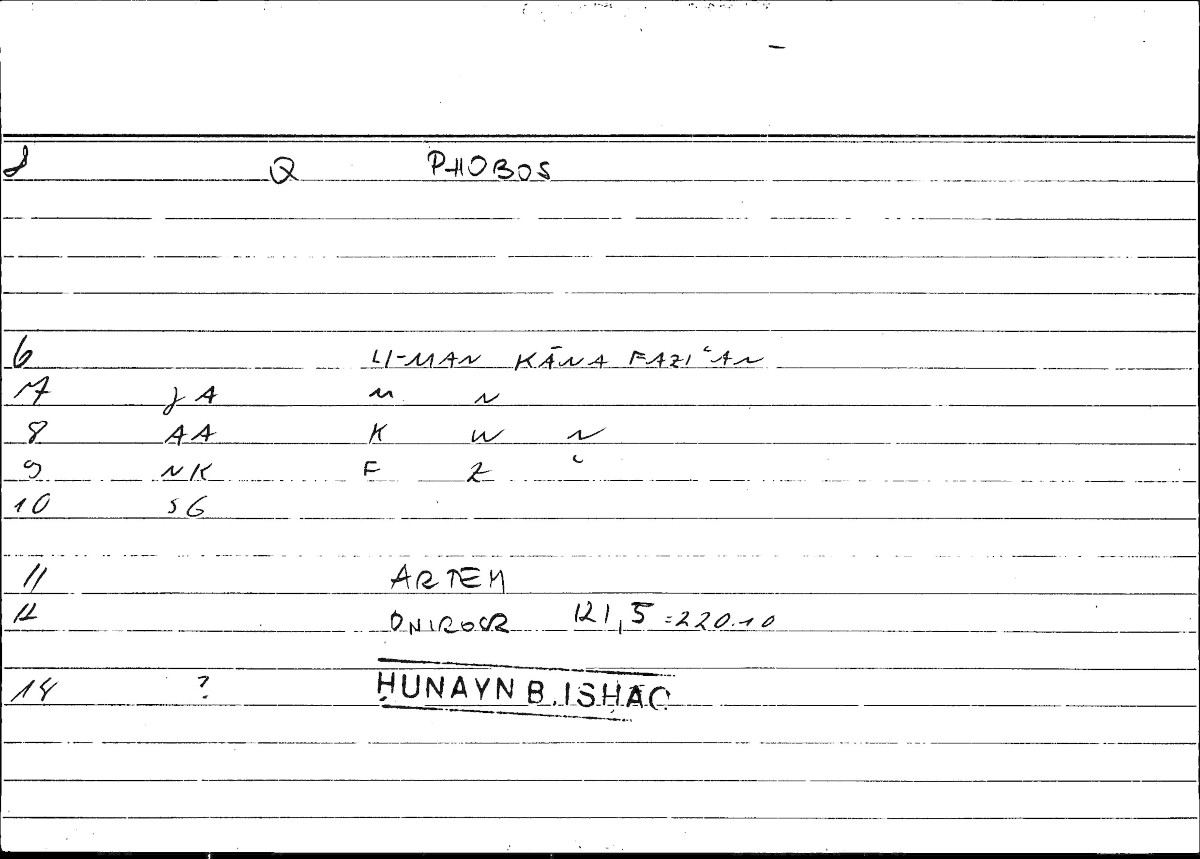 1 Q PHOBOS
6 LI-MAN KĀNA FAZIʿAN
7 JA M N
8 AA K W N
9 NK F Z ʿ
10 SG
11 ARTEM
12 ONIROCR 121,5 = 220.10
14 ? ḤUNAYN B. ISḤĀQ